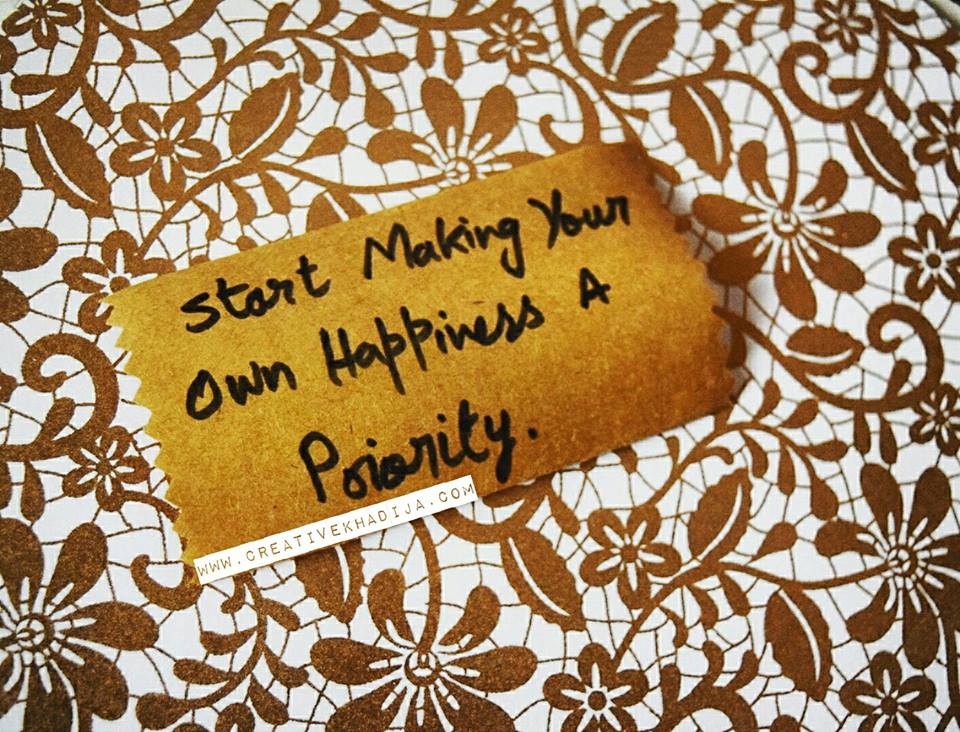 Start Making Your
Own Happiness A
Priority.
WWW.CREATIVEKHADIJA.COM